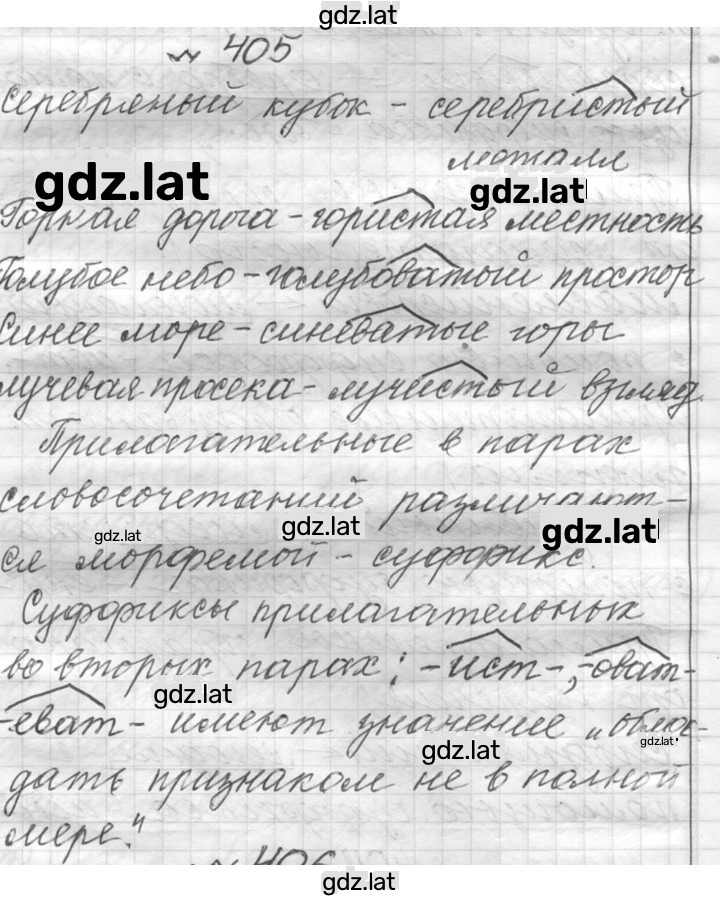 gdz.lat
№ 405
серебряный кубок - серебристый
металл
gdz.lat
gdz.lat
Горная дорога - гористая местность
Голубое небо - голубоватый простор
Синее море - синеватые горы
лучевая просека - лучистый взгляд.
Прилагательные в парах
словосочетаний различают-
gdz.lat
gdz.lat
gdz.lat
ся морфемой - суффикс.
Суффиксы прилагательных
во вторых парах: -ист-, -оват-
gdz.lat
-еват- имеют значение „обла-
gdz.lat
gdz.lat
дать признаком не в полной
мере."
№ 406
gdz.lat